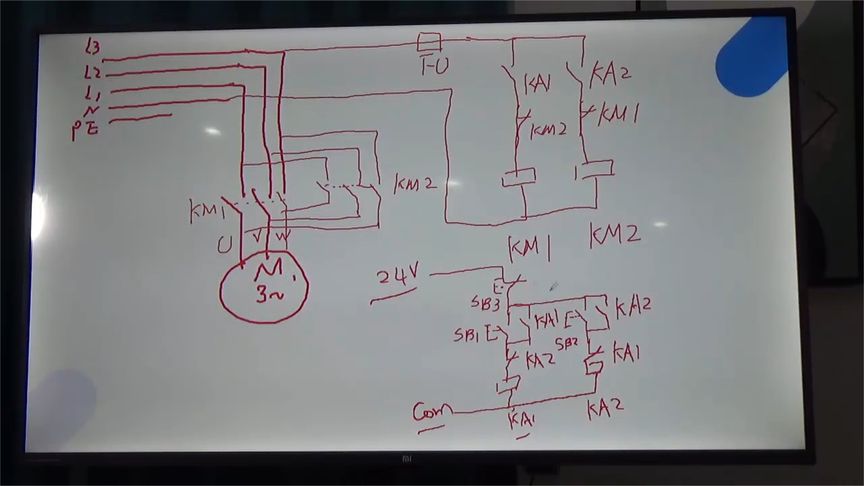 L3
L2
L1
N
PE
FU
KA1
KA2
KM2
KM1
KM1
KM2
U
V
W
M
3~
KM1
KM2
24V
SB3
SB1
KA1
KA2
SB2
KA2
KA1
Com
KA1
KA2
mi